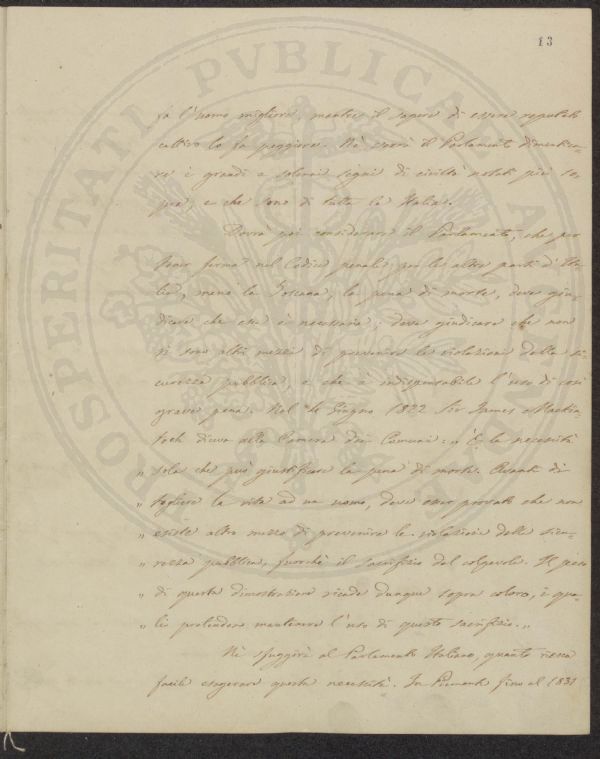 13
fa l'uomo migliore, mentre il sapere di essere reputato
cattivo lo fa peggiore. Nè vorrà il Parlamento dimentica-
re i grandi e solenni segni di civiltà notati più so-
pra, e che sono di tutta la Italia.
Dovrà poi considerare il Parlamento, che per
tener ferma nel Codice penale per le altre parti d'Ita-
lia, meno la Toscana, la pena di morte, deve giu-
dicare che essa è necessaria; deve giudicare che non
vi sono altri mezzi di prevenire le violazioni della si-
curezza pubblica, e che è indispensabile l'uso di così
grave pena. Nel 4 Giugno 1822 Sir James Mackin-
tosh diceva alla Camera dei Comuni: „ È la necessità
„ sola che può giustificare la pena di morte. Avanti di
„ togliere la vita ad un uomo, deve esser provato che non
„ esiste altro mezzo di prevenire le violazioni della sicu-
„ rezza pubblica, fuorchè il sacrifizio del colpevole. Il peso
„ di questa dimostrazione ricade dunque sopra coloro, i qua-
„ li pretendono mantenere l'uso di questo sacrifizio. „
Nè sfuggirà al Parlamento Italiano, quanto riesca
facile esagerare questa necessità. In Piemonte fino al 1831
PROSPERITATI PVBLICAE AVGENDAE